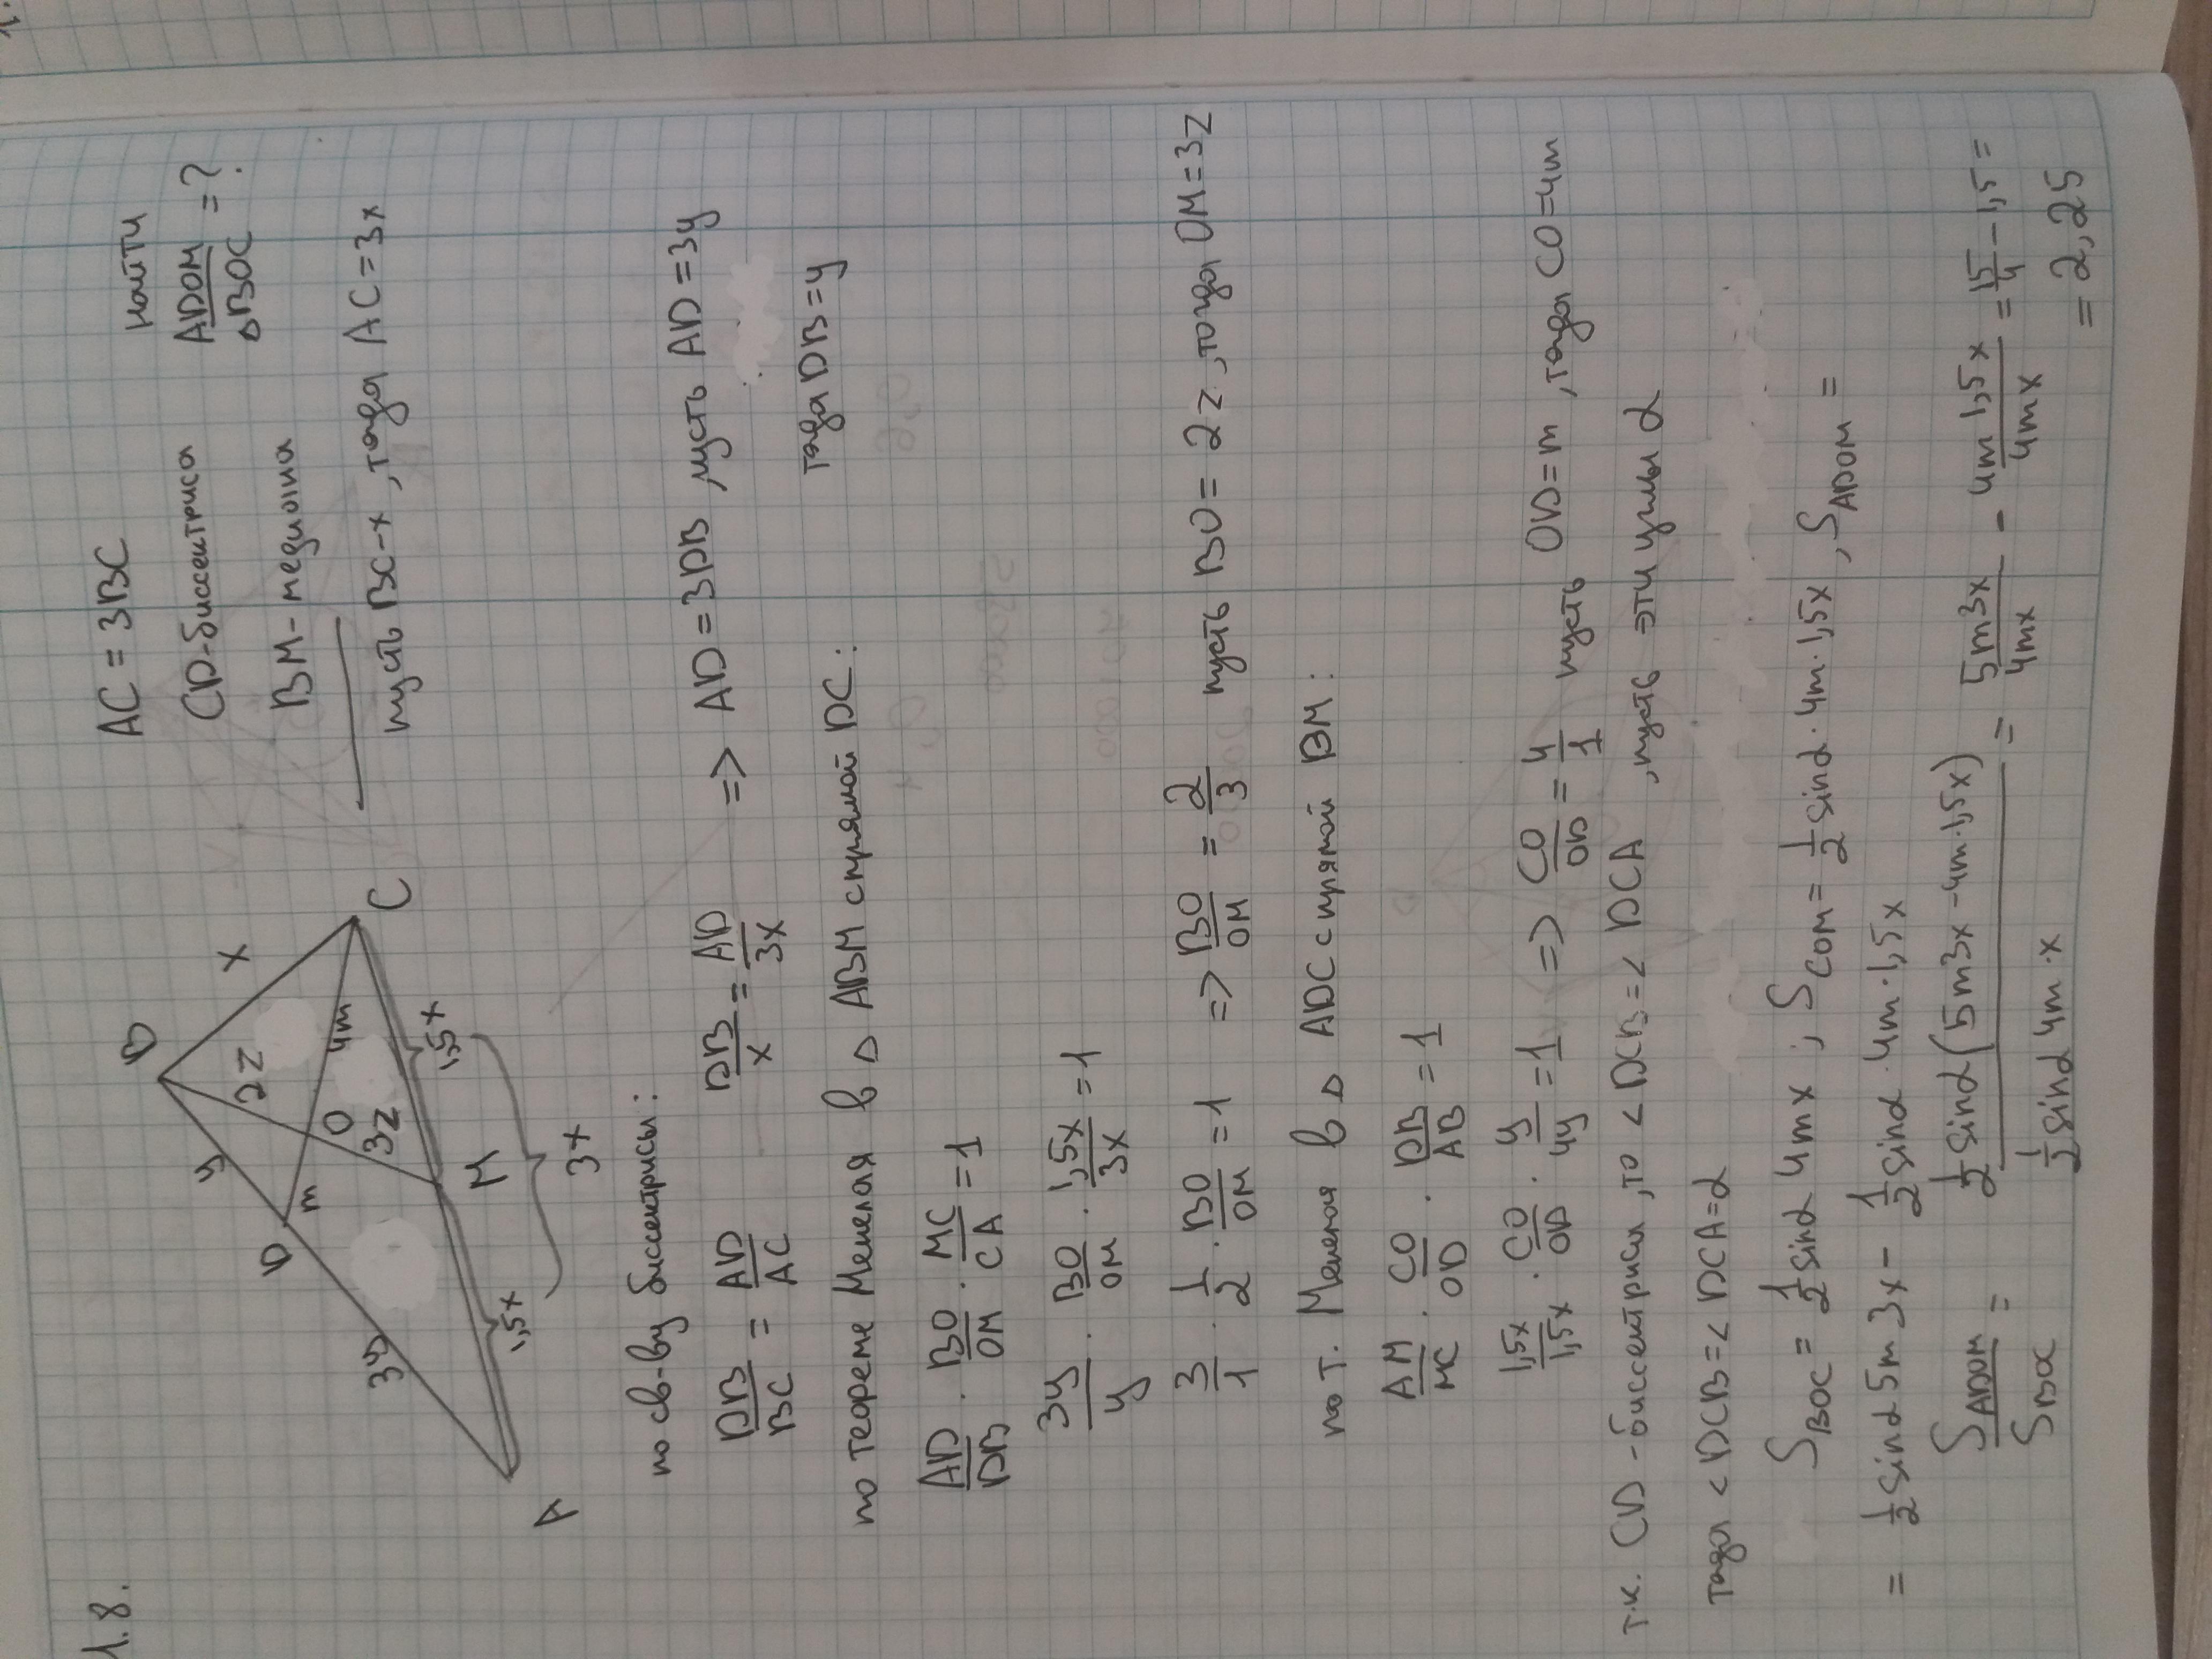 1.8.
AC = 3BC
найти
CD-биссектриса
ADOM/△BOC = ?
BM- медиана
пусть BC-x, тогда AC=3x
B
x
y
2z
D
m
O
4m
C
3y
3z
1,5x
M
1,5x
A
3x
по св-ву биссектрисы:
DB/BC = AD/AC DB/x = AD/3x => AD=3DB, пусть AD=3y
тогда DB=y
по теореме Менелая в △ ABM с прямой DC:
AD/DB · BO/OM · MC/CA = 1
3y/y · BO/OM · 1,5x/3x = 1
3/1 · 1/2 · BO/OM = 1 => BO/OM = 2/3 пусть BO = 2z, тогда OM=3z
по т. Менелая в △ ADC с прямой BM:
AM/MC · CO/OD · DB/AB = 1
1,5x/1,5x · CO/OD · y/4y = 1 => CO/OD = 4/1 пусть OD=m, тогда CO=4m
т.к. CD -биссектриса, то <DCB=<DCA, пусть эти углы α
тогда <DCB=<DCA=α
S BOC = 1/2 sinα 4mx; S COM = 1/2 sinα · 4m·1,5x, S ADOM =
= 1/2 sinα 5m 3x - 1/2 sinα · 4m·1,5x
S ADOM/S BOC = 1/2 sinα(5m3x-4m·1,5x)/1/2 sinα 4m·x = 5m3x/4mx - 4m1,5x/4mx = 15/4 - 1,5 =
= 2,25